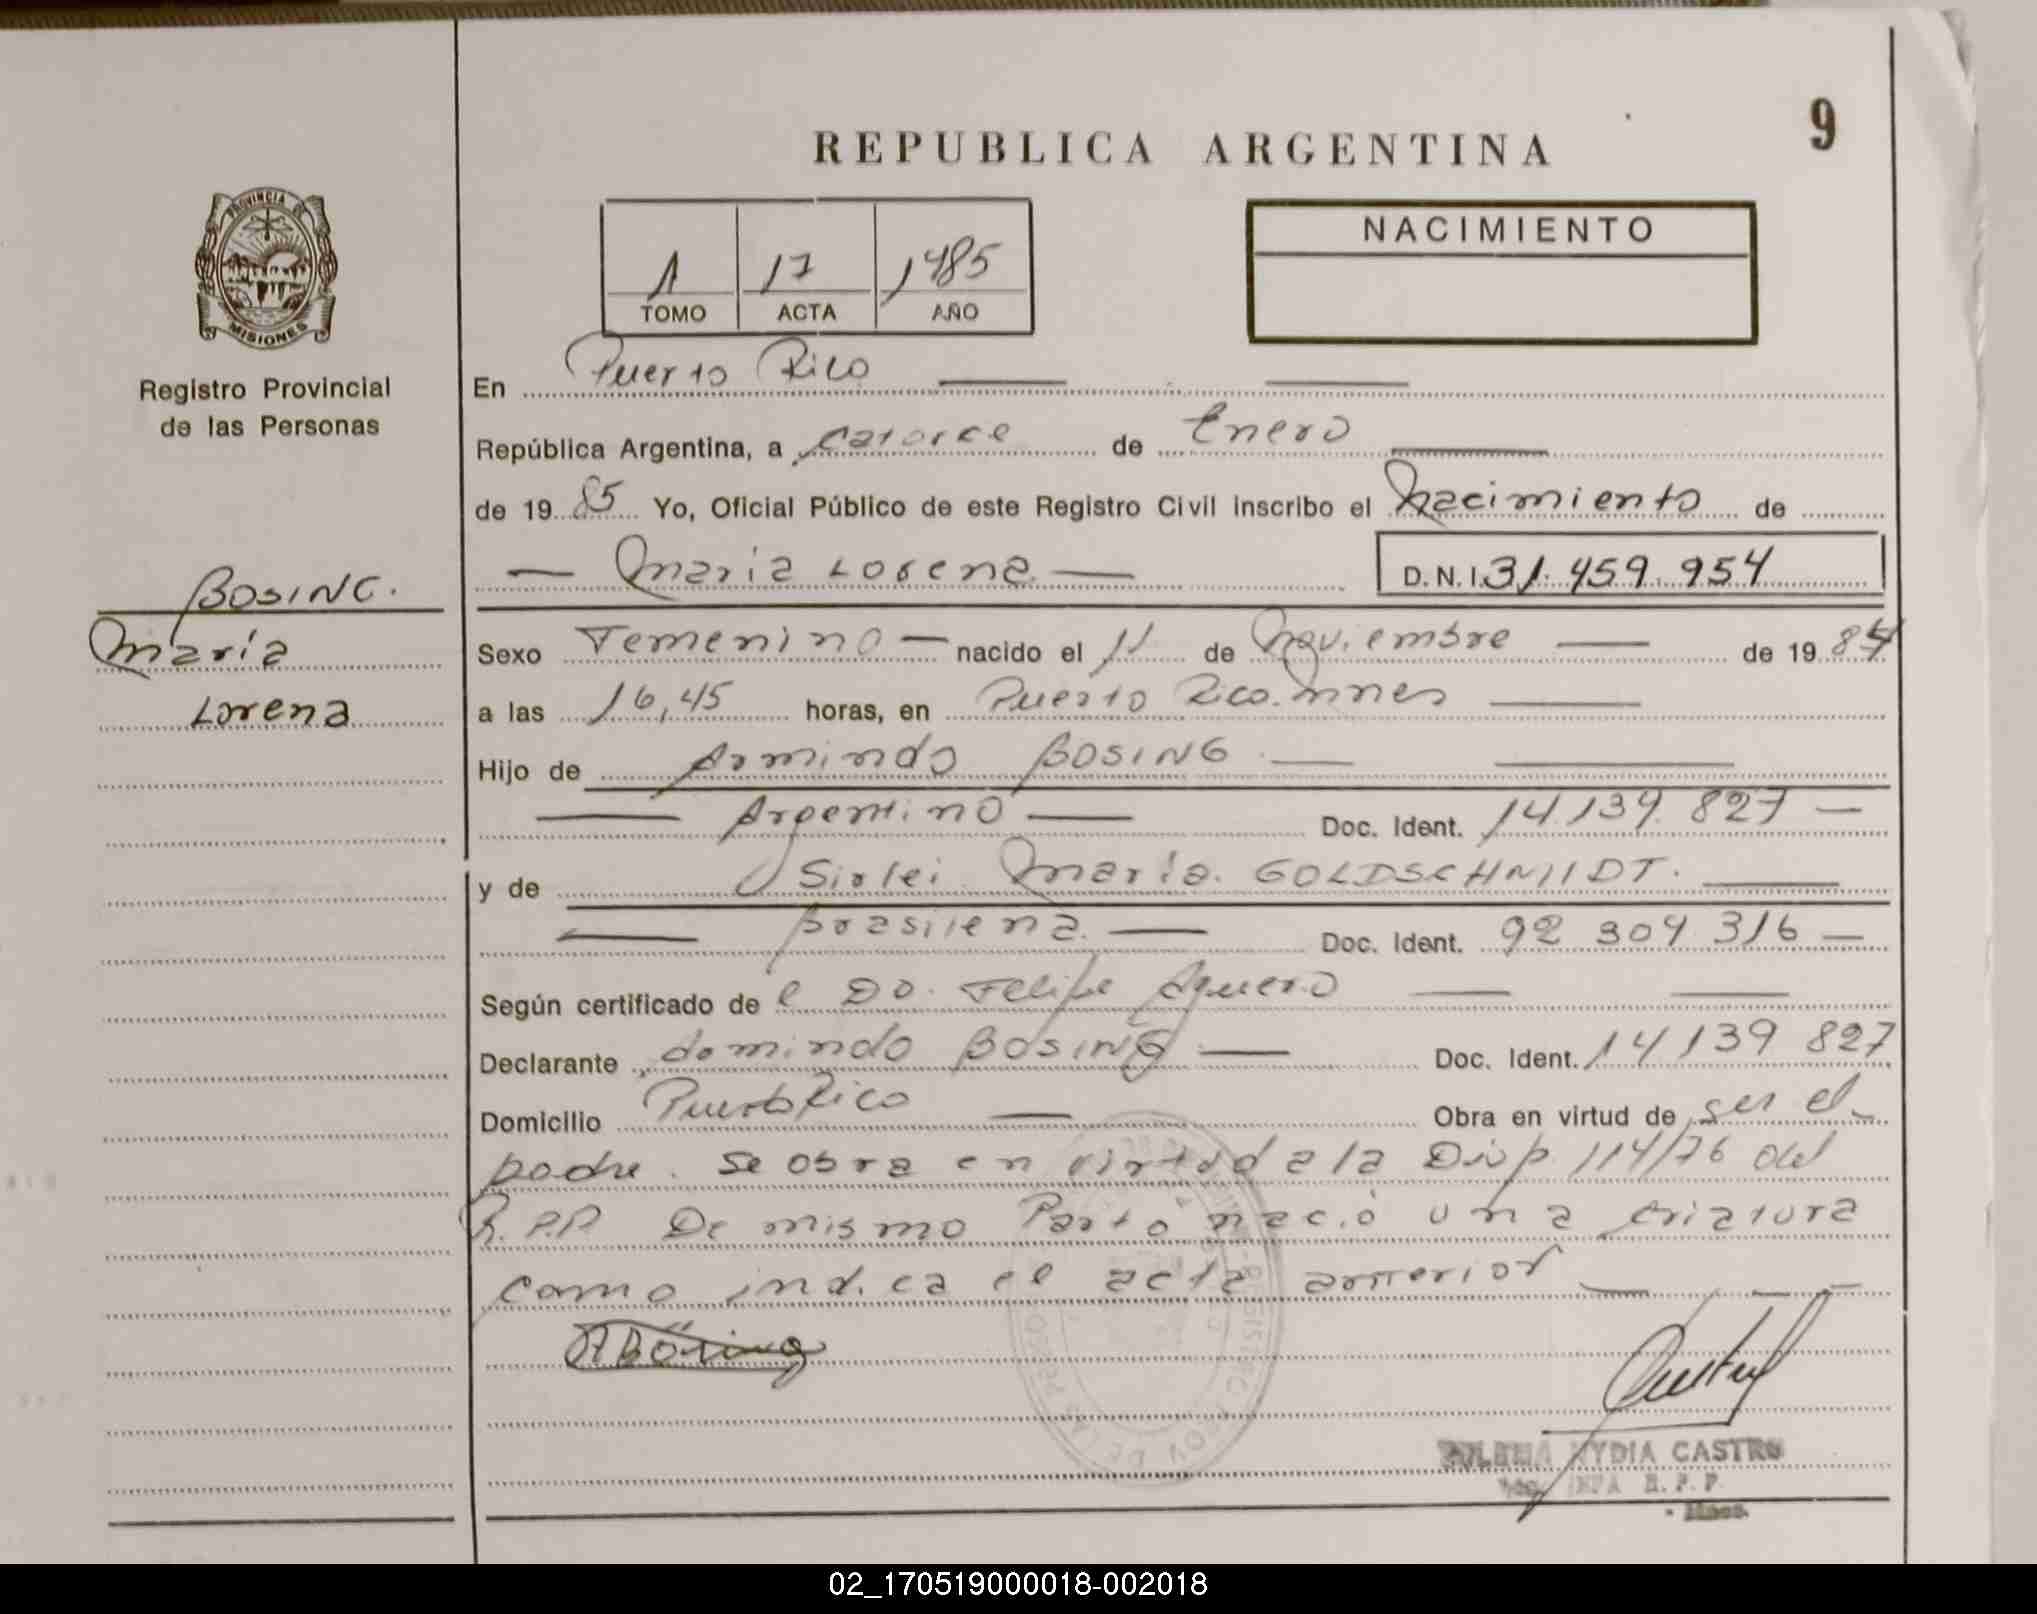 9
REPUBLICA ARGENTINA
PROVINCIA DE
MISIONES
Registro Provincial
de las Personas
1 17 1985
TOMO ACTA AÑO
NACIMIENTO
En Puerto Rico
República Argentina, a catorce de Enero
de 1985 Yo, Oficial Público de este Registro Civil inscribo el Nacimiento de
María Lorena D.N.I. 31.459.954
BOSING.
María
Lorena
Sexo Femenino nacido el 11 de Noviembre de 1984
a las 16,45 horas, en Puerto Rico. Mnes
Hijo de Armindo BOSING
Argentino Doc. Ident. 14.139.827
y de Sirlei María GOLDSCHMIDT.
Brasilena Doc. Ident. 92 304 316
Según certificado de e Dr. Felipe Aguero
Declarante Armindo BOSING Doc. Ident. 14 139 827
Domicilio Puerto Rico Obra en virtud de ser el
padre. Se obra en virtud a la Disp. 114/76 del
R.P.P. De mismo Parto nació una criatura
como indica el acta anterior
A Bösing
NYDIA CASTRO
R.P.P.
Mnes.
02_170519000018-002018